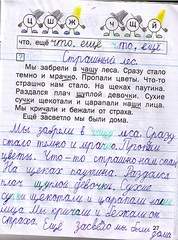 ц ш ж ч щ й
что, ещё что, ещё что, ещё
Страшный лес.
Мы забрели в чащу леса. Сразу стало
темно и мрачно. Пропали цветы. Что-то
страшно нам стало. На щеках паутина.
Раздался плач щуплой девочки. Сухие
сучки щекотали и царапали наши лица.
Мы кричали и бежали от страха.
Ещё засветло мы были дома.
Мы забрели в чащу леса. Сразу
стало темно и мрачно. Пропали
цветы. Что-то страшно нам стало
На щеках паутина. Раздался
плач щуплой девочки. Сухие
сучки щекотали и царапали
лица Мы кричали и бежали от
страха. Ещё засветло мы были дома
27